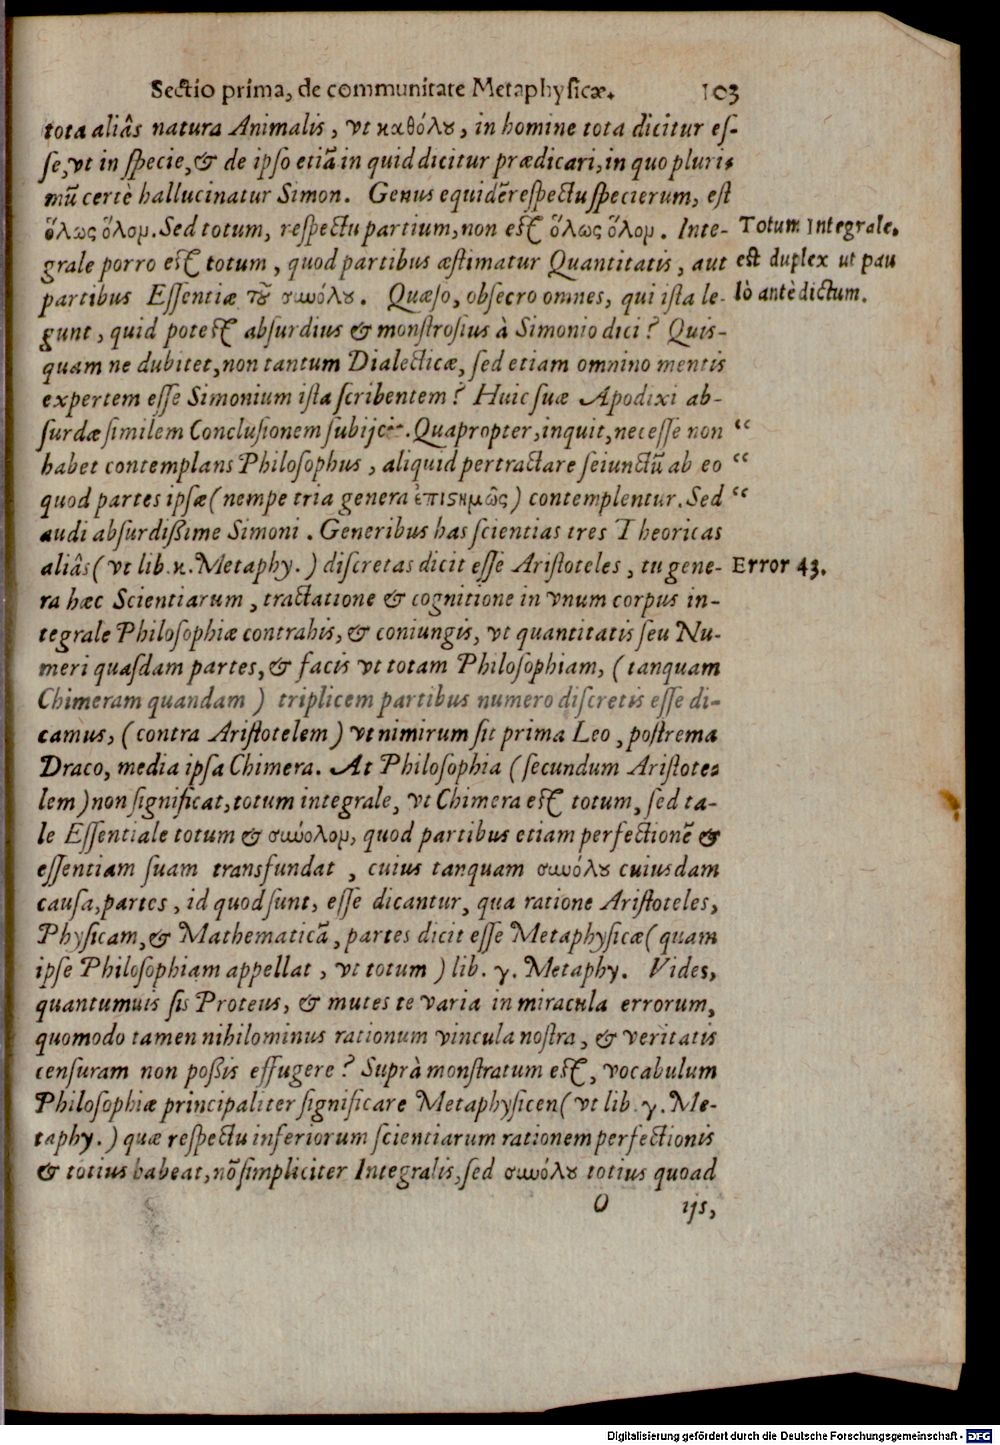 Sectio prima, de communitate Metaphysicæ. 103
tota aliâs natura Animalis, vt καθόλου, in homine tota dicitur es-
se, vt in specie, & de ipso etiã in quid dicitur prædicari, in quo pluri-
mũ certè hallucinatur Simon. Genus equidẽ respectu specierum, est
ὅλως ὅλομ. Sed totum, respectu partium, non est ὅλως ὅλομ. Inte-
Totum Integrale,
grale porro est totum, quod partibus æstimatur Quantitatis, aut
est duplex ut pau
partibus Essentiæ τοῦ συνόλου. Quæso, obsecro omnes, qui ista le-
lò antè dictum.
gunt, quid potest absurdius & monstrosius à Simonio dici? Quis-
quam ne dubitet, non tantum Dialecticæ, sed etiam omnino mentis
expertem esse Simonium ista scribentem? Huic suæ Apodixi ab-
surdæ similem Conclusionem subijcit. Quapropter, inquit, necesse non
“
habet contemplans Philosophus, aliquid pertractare seiunctũ ab eo
“
quod partes ipsæ (nempe tria genera ἐπιστημῶς) contemplentur. Sed
“
audi absurdißime Simoni. Generibus has scientias tres Theoricas
aliâs (vt lib. κ. Metaphy.) discretas dicit esse Aristoteles, tu gene-
Error 43.
ra hæc Scientiarum, tractatione & cognitione in vnum corpus in-
tegrale Philosophiæ contrahis, & coniungis, vt quantitatis seu Nu-
meri quasdam partes, & facis vt totam Philosophiam, (tanquam
Chimeram quandam) triplicem partibus numero discretis esse di-
camus, (contra Aristotelem) vt nimirum sit prima Leo, postrema
Draco, media ipsa Chimera. At Philosophia (secundum Aristote-
lem) non significat, totum integrale, vt Chimera est totum, sed ta-
le Essentiale totum & συνόλομ, quod partibus etiam perfectionẽ &
essentiam suam transfundat, cuius tanquam συνόλου cuiusdam
causa, partes, id quod sunt, esse dicantur, qua ratione Aristoteles,
Physicam, & Mathematicã, partes dicit esse Metaphysicæ (quam
ipse Philosophiam appellat, vt totum) lib. γ. Metaphy. Vides,
quantumuis sis Proteus, & mutes te varia in miracula errorum,
quomodo tamen nihilominus rationum vincula nostra, & veritatis
censuram non poßis effugere? Suprà monstratum est, vocabulum
Philosophiæ principaliter significare Metaphysicen (vt lib. γ. Me-
taphy.) quæ respectu inferiorum scientiarum rationem perfectionis
& totius habeat, nõ simpliciter Integralis, sed συνόλου totius quoad
O ijs,
Digitalisierung gefördert durch die Deutsche Forschungsgemeinschaft - DFG